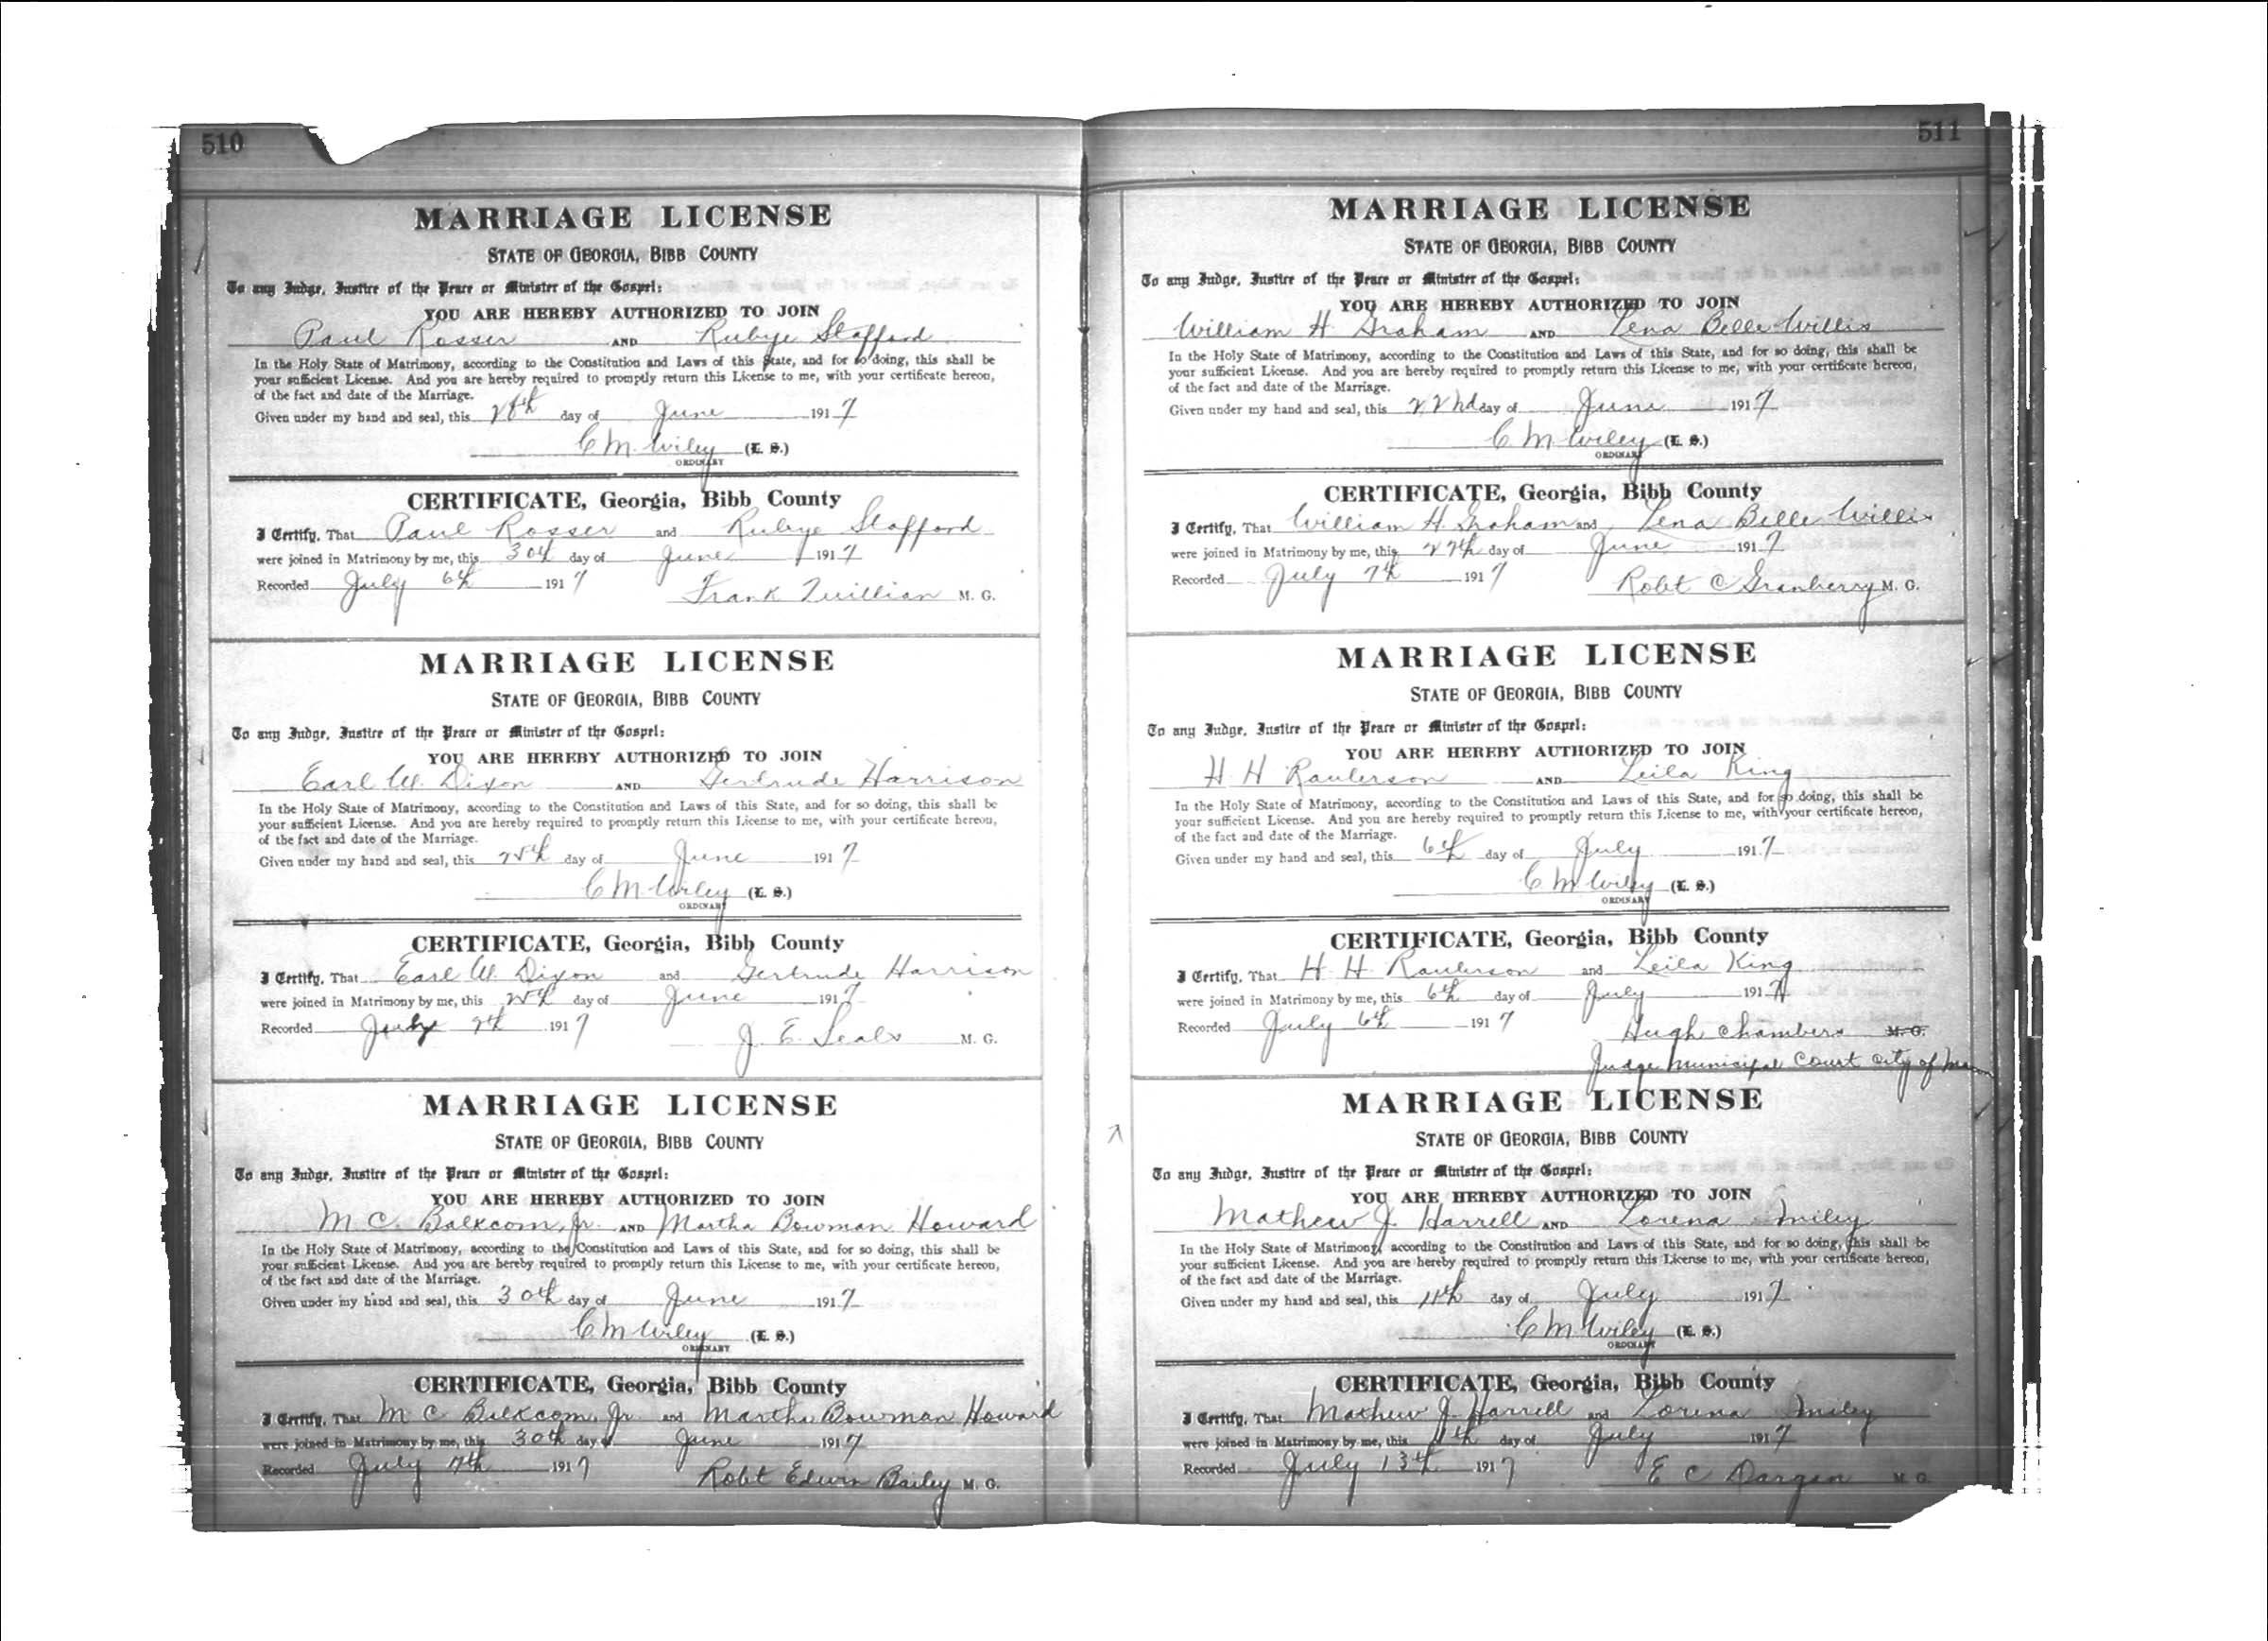 510
MARRIAGE LICENSE
STATE OF GEORGIA, BIBB COUNTY
To any Judge, Justice of the Peace or Minister of the Gospel:
YOU ARE HEREBY AUTHORIZED TO JOIN
Paul Rosser AND Rubye Stafford
In the Holy State of Matrimony, according to the Constitution and Laws of this State, and for so doing, this shall be
your sufficient License. And you are hereby required to promptly return this License to me, with your certificate hereon,
of the fact and date of the Marriage.
Given under my hand and seal, this day of June 1917
C M Wiley (L. S.)
ORDINARY
CERTIFICATE, Georgia, Bibb County
I Certify, That Paul Rosser and Rubye Stafford
were joined in Matrimony by me, this 30th day of June 1917
Recorded July 6th 1917
Frank Quillian M. G.
MARRIAGE LICENSE
STATE OF GEORGIA, BIBB COUNTY
To any Judge, Justice of the Peace or Minister of the Gospel:
YOU ARE HEREBY AUTHORIZED TO JOIN
Earl W. Dixon AND Gertrude Harrison
In the Holy State of Matrimony, according to the Constitution and Laws of this State, and for so doing, this shall be
your sufficient License. And you are hereby required to promptly return this License to me, with your certificate hereon,
of the fact and date of the Marriage.
Given under my hand and seal, this day of June 1917
C M Wiley (L. S.)
ORDINARY
CERTIFICATE, Georgia, Bibb County
I Certify, That Earl W. Dixon and Gertrude Harrison
were joined in Matrimony by me, this day of June 1917
Recorded July 1917
J. E. Seals M. G.
MARRIAGE LICENSE
STATE OF GEORGIA, BIBB COUNTY
To any Judge, Justice of the Peace or Minister of the Gospel:
YOU ARE HEREBY AUTHORIZED TO JOIN
M C. Balkcom, Jr. AND Martha Bowman Howard
In the Holy State of Matrimony, according to the Constitution and Laws of this State, and for so doing, this shall be
your sufficient License. And you are hereby required to promptly return this License to me, with your certificate hereon,
of the fact and date of the Marriage.
Given under my hand and seal, this 30th day of June 1917
C M Wiley (L. S.)
ORDINARY
CERTIFICATE, Georgia, Bibb County
I Certify, That M C Balkcom, Jr. and Martha Bowman Howard
were joined in Matrimony by me, this 30th day of June 1917
Recorded July 7th 1917
Robt Edwin Bailey M. G.
511
MARRIAGE LICENSE
STATE OF GEORGIA, BIBB COUNTY
To any Judge, Justice of the Peace or Minister of the Gospel:
YOU ARE HEREBY AUTHORIZED TO JOIN
William H. Graham AND Lena Belle Willis
In the Holy State of Matrimony, according to the Constitution and Laws of this State, and for so doing, this shall be
your sufficient License. And you are hereby required to promptly return this License to me, with your certificate hereon,
of the fact and date of the Marriage.
Given under my hand and seal, this 22nd day of June 1917
C M Wiley (L. S.)
ORDINARY
CERTIFICATE, Georgia, Bibb County
I Certify, That William H. Graham and Lena Belle Willis
were joined in Matrimony by me, this 27th day of June 1917
Recorded July 7th 1917
Robt C Granberry M. G.
MARRIAGE LICENSE
STATE OF GEORGIA, BIBB COUNTY
To any Judge, Justice of the Peace or Minister of the Gospel:
YOU ARE HEREBY AUTHORIZED TO JOIN
H H Raulerson AND Leila King
In the Holy State of Matrimony, according to the Constitution and Laws of this State, and for so doing, this shall be
your sufficient License. And you are hereby required to promptly return this License to me, with your certificate hereon,
of the fact and date of the Marriage.
Given under my hand and seal, this 6th day of July 1917
C M Wiley (L. S.)
ORDINARY
CERTIFICATE, Georgia, Bibb County
I Certify, That H. H. Raulerson and Leila King
were joined in Matrimony by me, this 6th day of July 1917
Recorded July 6th 1917
Hugh Chambers M. G.
Judge Municipal Court City of
MARRIAGE LICENSE
STATE OF GEORGIA, BIBB COUNTY
To any Judge, Justice of the Peace or Minister of the Gospel:
YOU ARE HEREBY AUTHORIZED TO JOIN
Mathew J. Harrell AND Lorena Miley
In the Holy State of Matrimony, according to the Constitution and Laws of this State, and for so doing, this shall be
your sufficient License. And you are hereby required to promptly return this License to me, with your certificate hereon,
of the fact and date of the Marriage.
Given under my hand and seal, this 11th day of July 1917
C M Wiley (L. S.)
ORDINARY
CERTIFICATE, Georgia, Bibb County
I Certify, That Mathew J. Harrell and Lorena Miley
were joined in Matrimony by me, this day of July 1917
Recorded July 13th 1917
E C Dargan M. G.